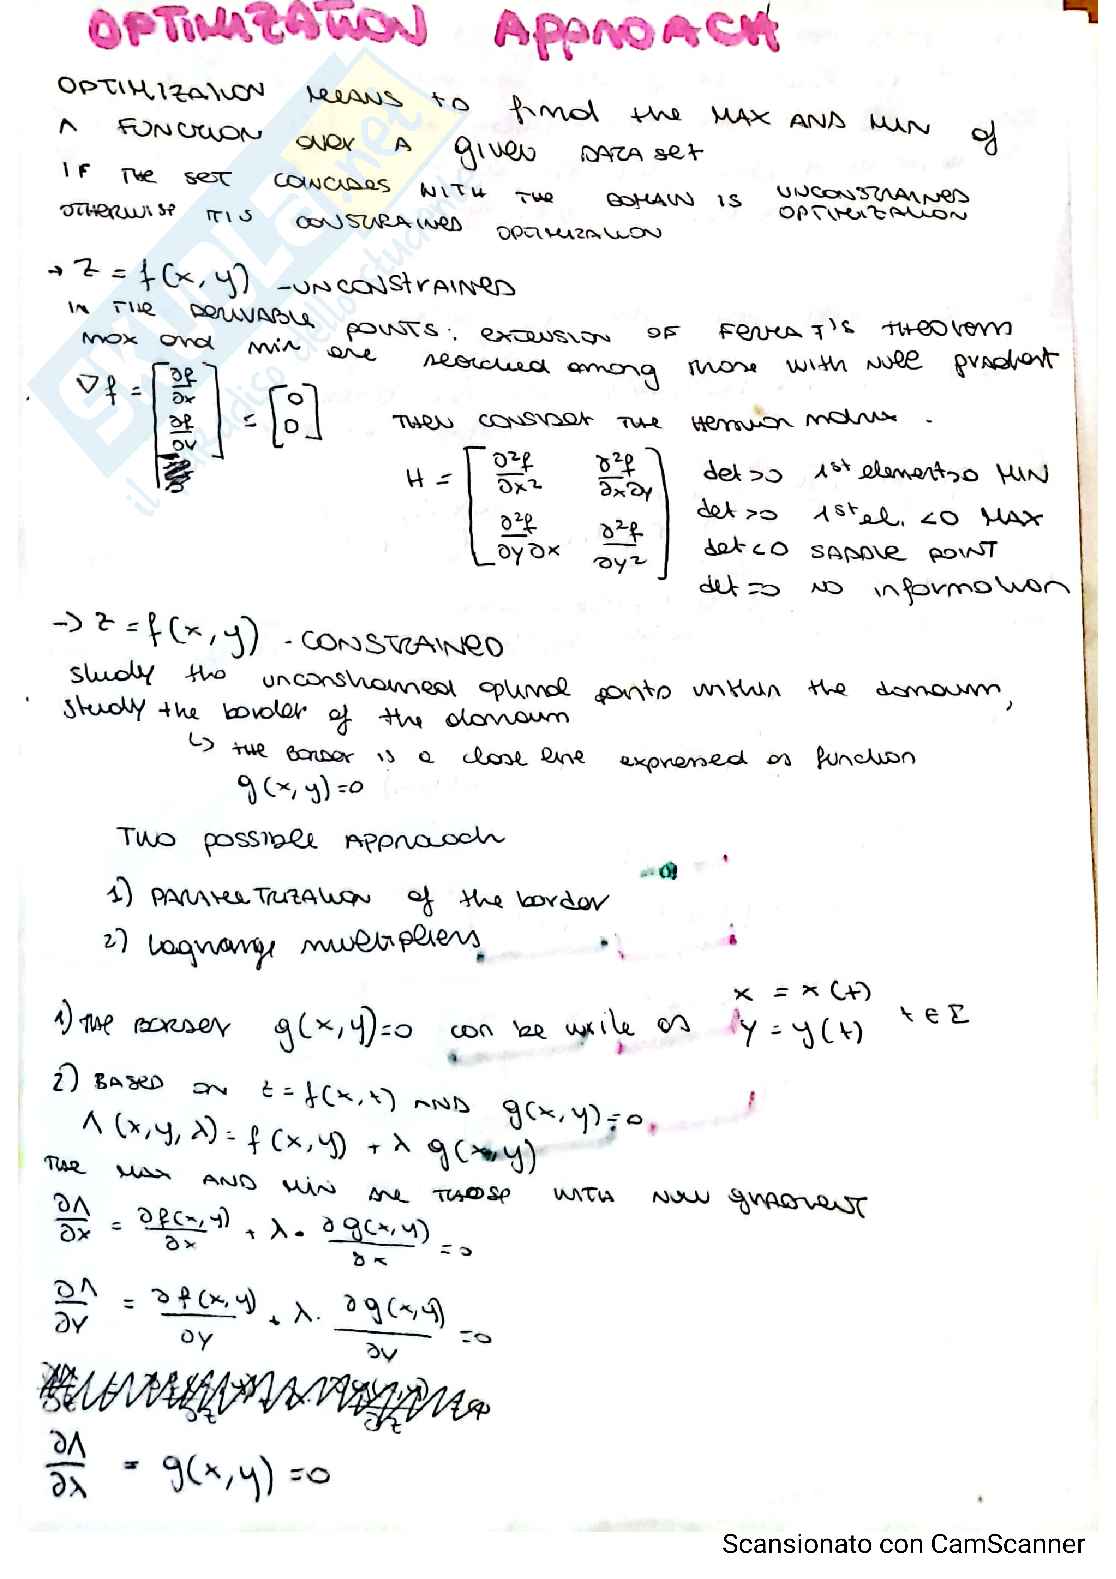 OPTIMIZATION APPROACH
OPTIMIZATION MEANS to find the MAX AND MIN of
A FUNCTION over A given DATA set
IF THE SET COINCIDES WITH THE DOMAIN IS UNCONSTRAINED OPTIMIZATION
OTHERWISE IT IS CONSTRAINED OPTIMIZATION
→ Z = f(x, y) - UNCONSTRAINED
IN THE DERIVABLE POINTS: EXTENSION OF FERMAT'S THEOREM
max and min are searched among those with null gradient
∇f = [∂f/∂x ∂f/∂y] = [0 0] THEN CONSIDER THE Hessian matrix.
H = [∂²f/∂x² ∂²f/∂x∂y ∂²f/∂y∂x ∂²f/∂y²]
det >0 1st element >0 MIN
det >0 1st el. <0 MAX
det <0 SADDLE POINT
det =0 NO information
→ z = f(x, y) - CONSTRAINED
study the unconstrained optimal points within the domain,
study the border of the domain
↳ THE BORDER IS a close line expressed as function
g(x, y)=0
TWO possible APPROACH
1) PARAMETRIZATION of the border
2) Lagrange multipliers
1) THE BORDER g(x, y)=0 can be write as x = x(t) y = y(t) t ∈ I
2) BASED ON z = f(x, t) AND g(x, y)=0
Λ(x, y, λ) = f(x, y) + λ g(x, y)
THE MAX AND MIN ARE THOSE WITH NULL gradient
∂Λ/∂x = ∂f(x, y)/∂x + λ · ∂g(x, y)/∂x = 0
∂Λ/∂y = ∂f(x, y)/∂y + λ · ∂g(x, y)/∂y = 0
∂Λ/∂λ = g(x, y) = 0
Scansionato con CamScanner